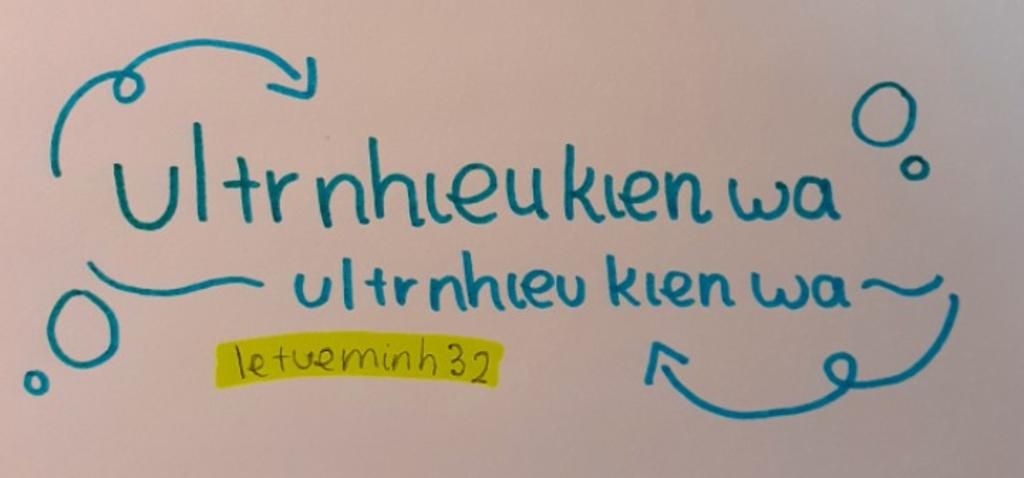 ultr nhıeu kıen wa
ultr nhıeu kıen wa
letueminh32